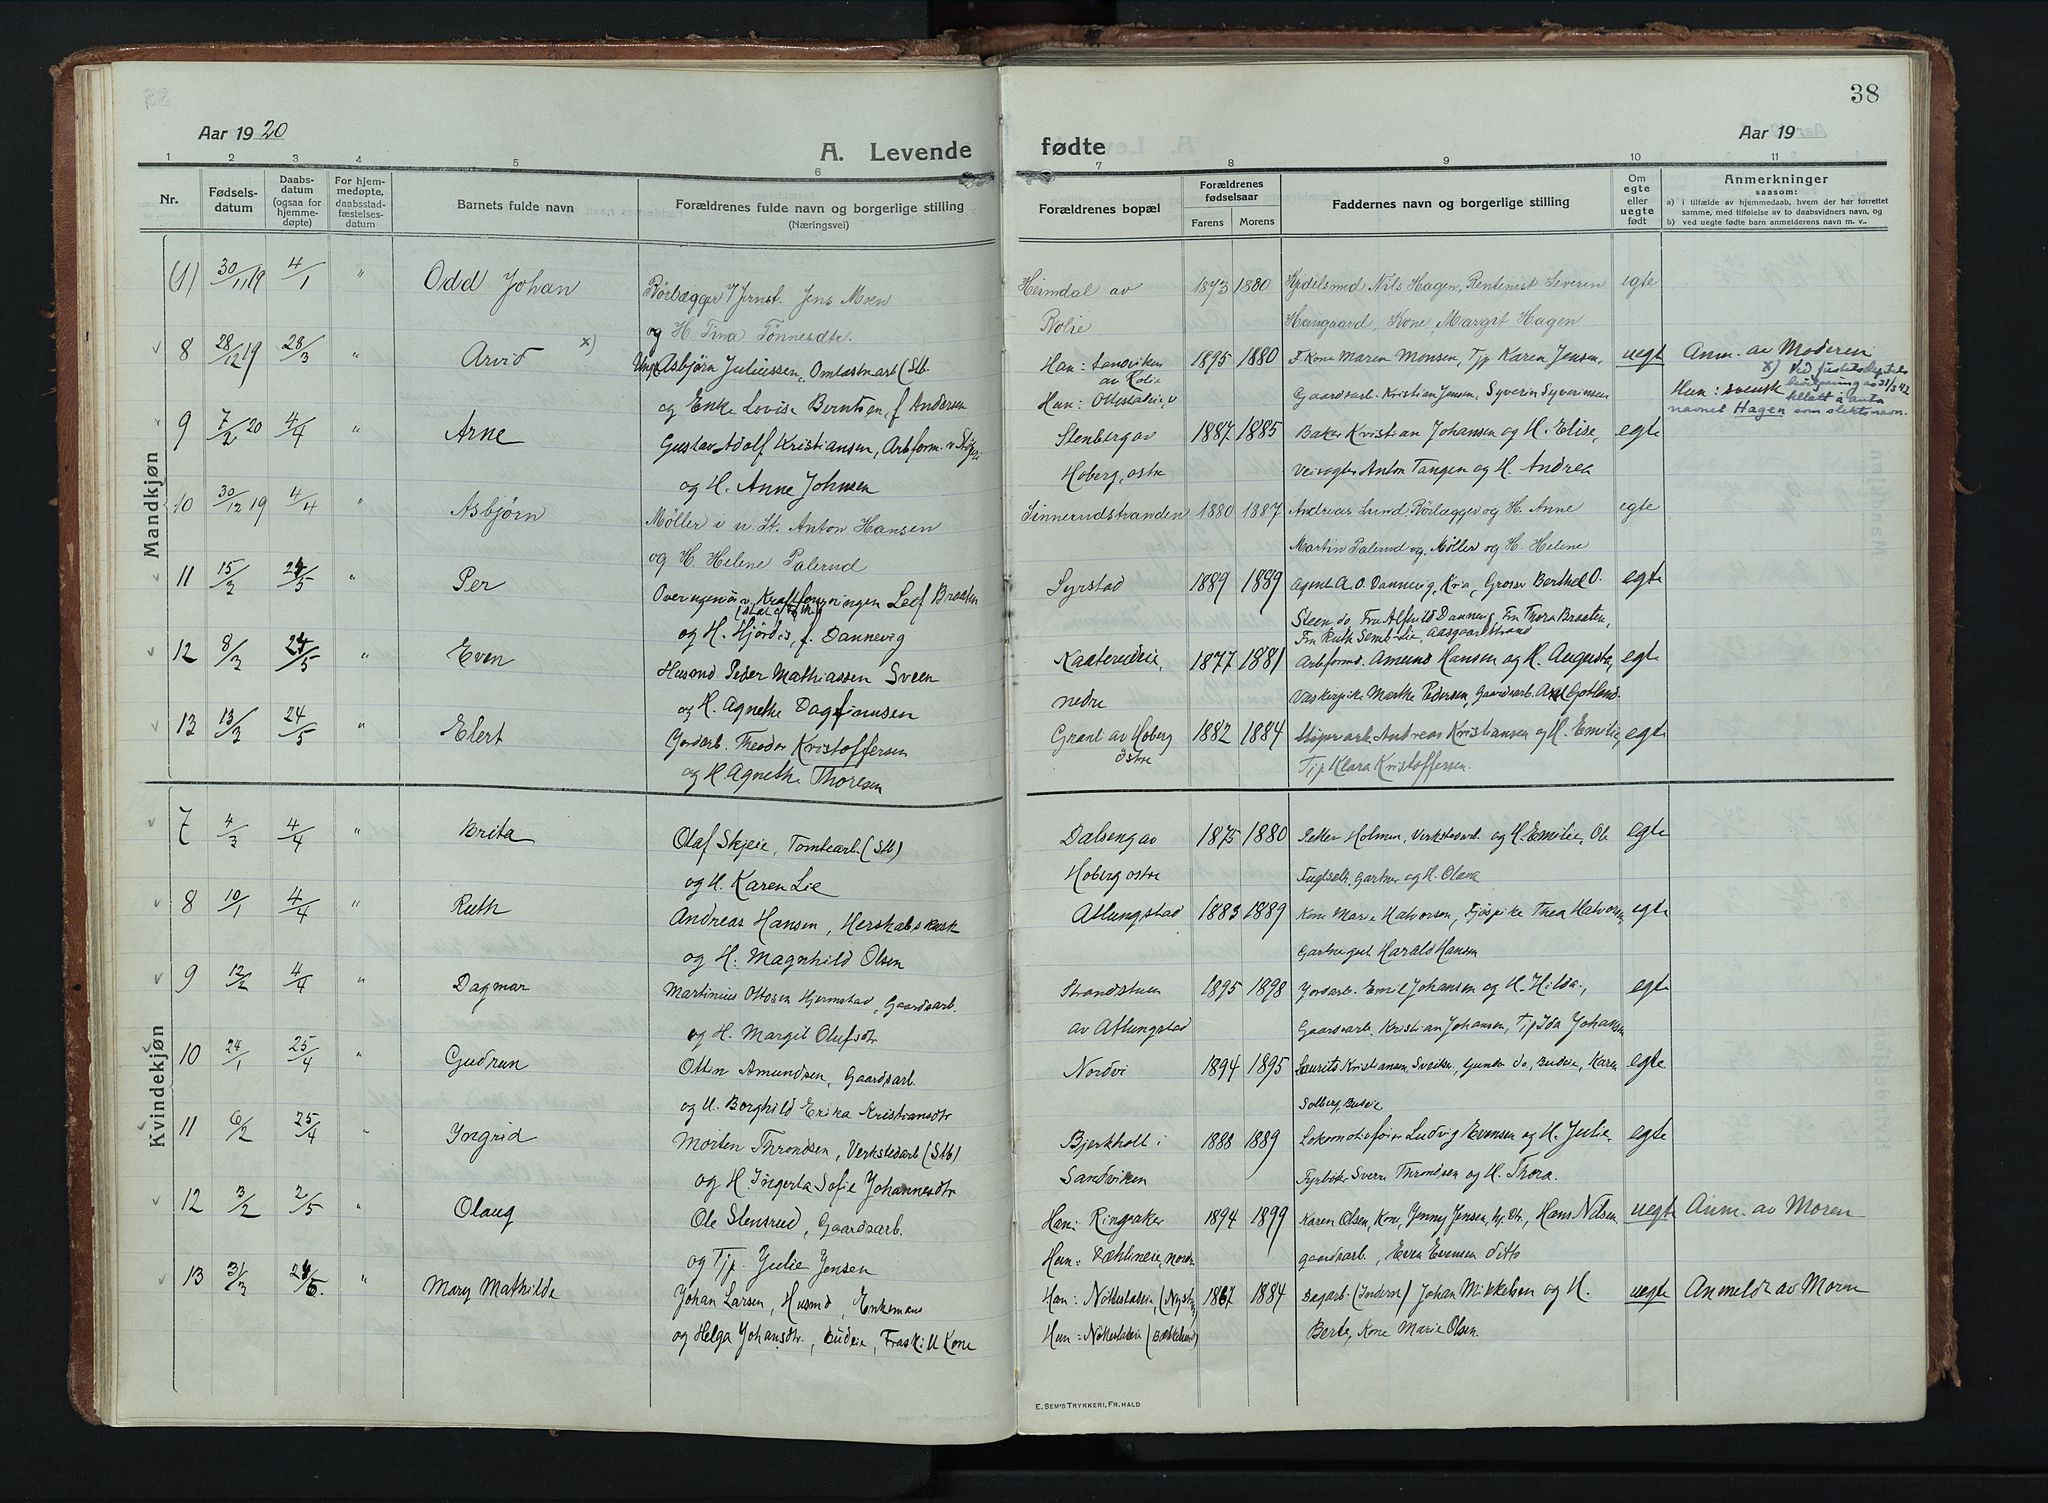 38
Aar 1920
Aar 19
A. Levende
fødte
1 2 3 4 5 6 7 8 9 10 11
Nr.
Fødsels-
datum
Daabs-
datum
(ogsaa for
hjemme-
døpte)
For hjem-
medøpte,
daabsstad-
fæstelses-
datum
Barnets fulde navn
Forældrenes fulde navn og borgerlige stilling
(Næringsvei)
Forældrenes bopæl
Forældrenes
fødselsaar
Farens Morens
Faddernes navn og borgerlige stilling
Om
egte
eller
uegte
født
Anmerkninger
saasom:
a) i tilfælde av hjemmedaab, hvem der har forrettet
samme, med tilføielse av to daabsvidners navn, og
b) ved uegte fødte barn anmelderens navn m. v..
Mandkjøn
(1) 30/11 19 4/1 " Odd Johan Rørlægger Jens Moen Heimdal av 1873 1880 Nils Hagen, Rentenist Severin egte
og H. Tina Tønnesdtr. Rolie Haugaard, Kone Margit Hagen
8 28/12 19 28/3 " Arvid x) Ungk. Asbjørn Juliussen, Omtastnarb (Stb. Han: Sandviken 1895 1880 F. Kone Maren Monsen, Tjp Karen Jensen, uegt Anm. av Moderen
av Rolie x) Ved justisdeptets
og Enke Lovise Berntsen, f. Andersen Han: Ottestadeie, v Gaardsarb. Kristian Jensen, Syverin Syverinsen Hun: svensk bevilgning av 31/3 42
tillatt å anta
navnet Hagen som slektsnavn.
9 7/2 20 4/4 " Arne Gustav Adolf Kristiansen, Arbform. v. Stenberg av 1887 1885 Baker Kristian Johansen og H. Elise, egte
og H. Anne Johnsen Hoberg, østre Veivogter Anton Tangen og H. Andrea
10 30/12 19 4/4 " Asbjørn Møller i u. St. Anton Hansen Sinnerudstranden 1880 1887 Andreas Lund Rørlægger og H. Anne egte
og H. Helene Palerud Martin Palerud og Møller og H. Helene
11 15/3 24/5 " Per Overingeniør v. Kraftforsyningen Leif Braaten Syrstad 1889 1889 Agent A. O. Dannevig, Kria, Grosser Berthel O. egte
og H. Hjørdis, f. Dannevig Steen do, Fru Alfhild Dannevig, Fru Thora Braaten,
Fru Ruth Semb-Lie, Aasgaardstrand
12 8/3 24/5 " Even Husmd. Peder Mathiassen Sveen Naaterudeie, 1877 1881 Arbformd. Amund Hansen og H. Augusta, egte
og H. Agnethe Dagfinnsen nedre Vaskerpike Marthe Pedersen, Gaardsarb. Axel Gotland.
13 13/3 24/5 " Elert Jordarb. Theodor Kristoffersen Grant av Hoberg 1882 1884 Andreas Kristiansen og H. Emilie, egte
og H Agnethe Thoresen østre Tjp Klara Kristoffersen.
Kvindekjøn
7 4/3 4/4 " Brita Olaf Skjeie, Tomtearb (Stb) Dalseng av 1875 1880 Petter Holmen, Verkstedarb. og H. Emilie, Ole egte
og H. Karen Lie Hoberg østre Fuglseth, Gartner og H. Olava
8 10/1 4/4 " Ruth Andreas Hansen, Herskabskusk Atlungstad 1883 1889 Kone Marie Halvorsen, Fjøspike Thea Halvorsen egte
og H. Magnhild Olsen Gartnergut Harald Hansen
9 12/2 4/4 " Dagmar Martinius Ottosen Hjermstad, Gaardsarb. Strandstuen 1895 1898 Jordarb. Emil Johansen og H. Hilda, egte
og H. Margit Olufsdtr av Atlungstad Gaardsarb. Kristian Johansen, Tjp Ida Johansen
10 24/1 25/4 " Gudrun Ottin Amundsen, Gaardsarb. Nordvi 1894 1895 Laurits Kristiansen, Sveitser, Gunda do, Budeie, Karen egte
og H. Borghild Erika Kristiansdtr Solberg, Budeie
11 6/2 25/4 " Yngrid Morten Throndsen, Verkstedarb (Stb) Bjerkholt i 1888 1889 Lokomotivfører Ludvig Evensen og H. Julie, egte
og H. Ingerta Sofie Johannesdtr Sandviken Fyrbøter Sverre Throndsen og H. Thora.
12 3/2 2/5 " Olaug Ole Stensrud, Gaardsarb. Han: Ringsaker 1894 1899 Karen Olsen, Kone, Jenny Jensen, Hans Nilsen uegte Anm. av Moren
og Tjp. Julie Jensen Hun: Dæhlineie, nordre gaardsarb., Even Evensen ditto
13 31/3 24/5. " Mary Mathilde Johan Larsen, Husmd, Enkemand Han: Nøttestadeie 1867 1884 Dagarb. Johan Mikkelsen og H. uegte Anmeldt av Moren
og Helga Johansdtr., Budeie, Frask. Kone Hun: Nøttestadeie Berte, Kone Marie Olsen.
E. SEM'S TRYKKERI, FR. HALD